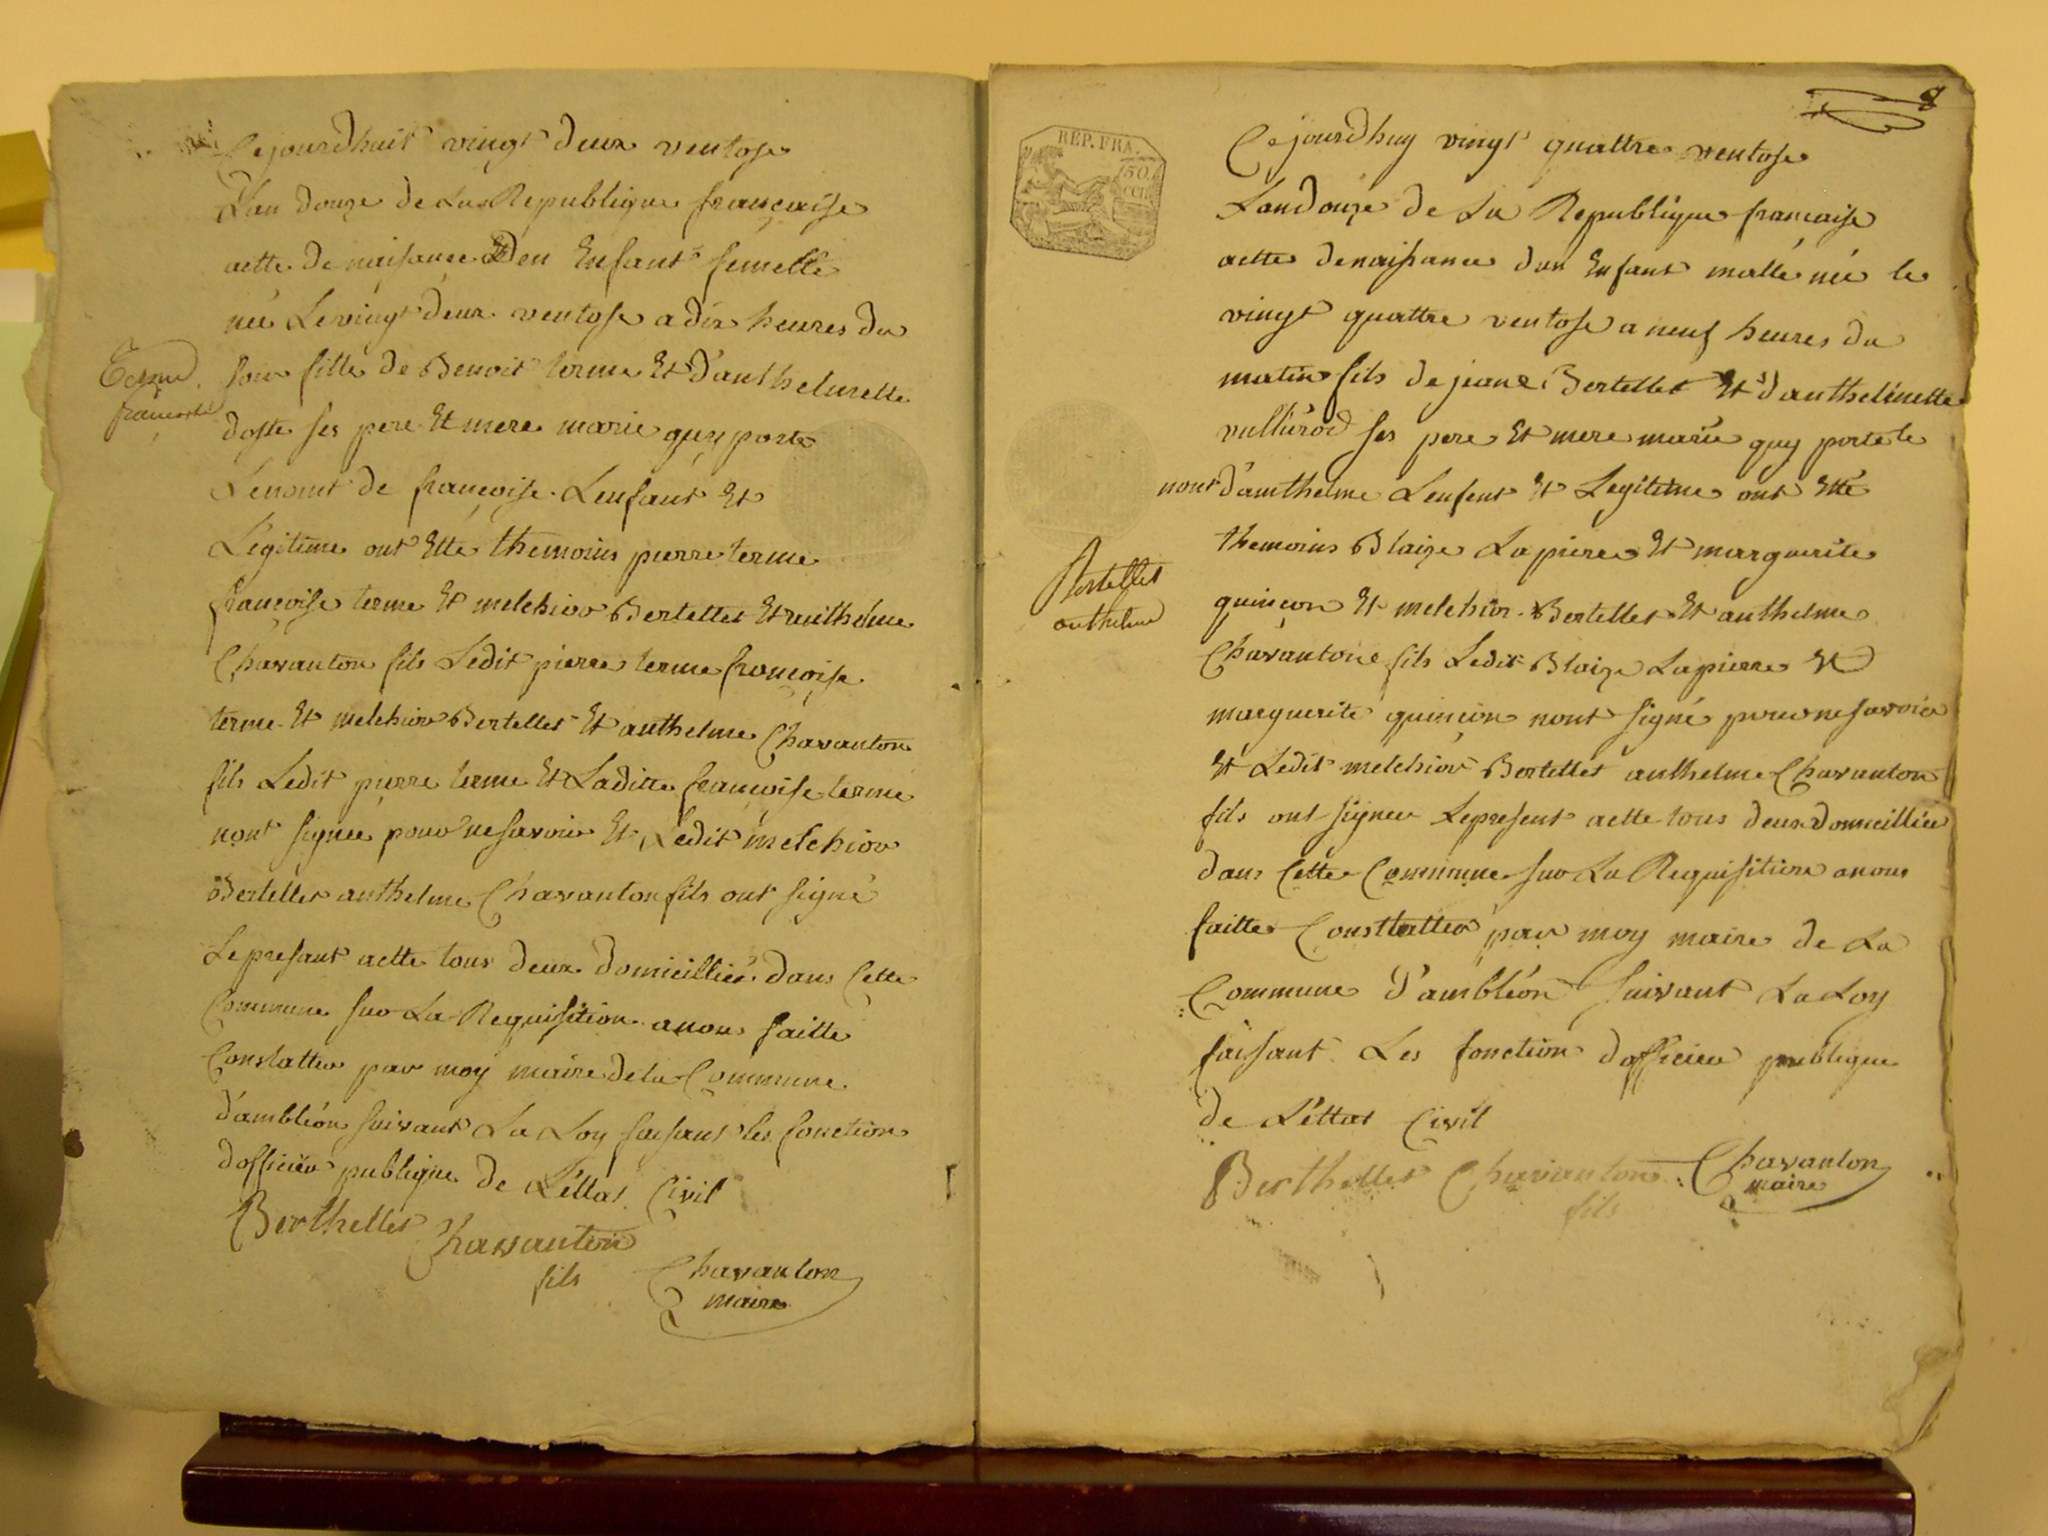 Cejourdhuit vingt deux ventose
Lan douze de La Republique françaisse
actte de naisance Den Enfant femelle
née Levingt deux ventose a dix heures du
soir fille de Benoit terme Et d'anthelmette
Terme
françoise
doste ses pere Et mere marie quy porte
Lenomt de françoise. Lenfant Et
Légitime ont Etté themoins pierre terme
françoise terme Et melchior Bertellet Et anthelme
Chavanton fils Ledit pierre terme françoise
terme Et melchior Bertellet Et anthelme Chavanton
fils Ledit pierre terme Et Laditte françoise terme
nont signee pour ne savoir Et Ledit melchior
Bertellet anthelme Chavanton fils ont signé
Le presant actte tous deux domicilliés dans Cette
Commune sur La Requisition anous faitte
Constatter par moy maire de la Commune
d'ambléon suivant La Loy faisant les fonction
dofficier publique de L'éttat Civil
Berthellet Chavanton
fils
Chavanton
maire
8
REP. FRA.
50
CEN
Cejourdhuy vingt quattre ventose
Landouze de La Republique francaise
actte denaissance dun Enfant malle née le
vingt quattre ventose a neuf heures du
matin fils de jeane Bertellet Et d'anthelmette
vulliérod ses pere Et mere marie quy porte le
nomt d'amthelme Lenfent Et Legitime ont Etté
themoins Blaize Lapierre Et marguerite
Bertellet
anthelme
quincon Et melchior Bertellet Et anthelme
Chavantone fils Ledit Blaize Lapierre Et
marguerite quincon nont signé pour ne savoir
Et Ledit melchior Bertellet anthelme Chavanton
fils ont signer Lepresent actte tous deux domicilliée
dans Cette Commune sur La Requisitione anous
faitte Consttatter par moy maire de La
Commune d'ambléon suivant La Loy
faisant Les fonction dofficier publique
de L'éttat Civil
Berthellet Chavanton Chavanton
fils maire